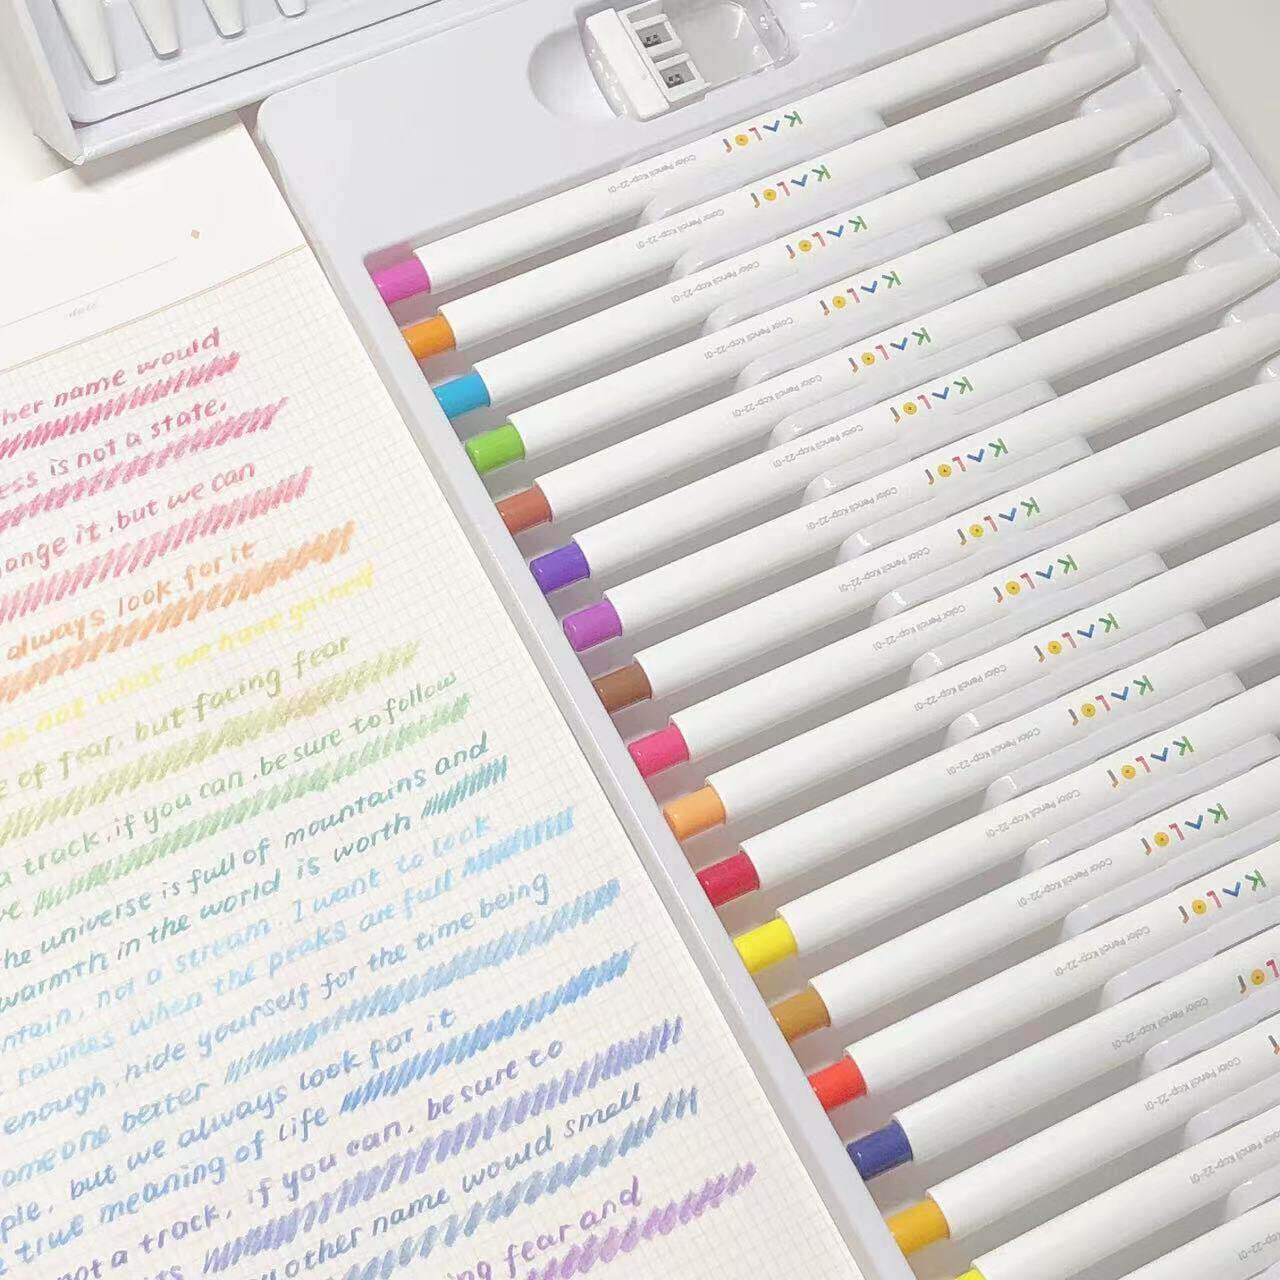 her name would
ess is not a state,
ange it, but we can
always look for it
not what we have gained
e of fear, but facing fear
a track, if you can, be sure to follow
ve
he universe is full of mountains and
warmth in the world is worth
ntain, not a stream. I want to look
ravines when the peaks are full
enough, hide yourself for the time being
omeone better
ple, but we always look for it
e true meaning of life
not a track, if you can, be sure to
its
other name would smell
ing fear and
KALOR
Color Pencil Kcp-22-01
KALOR
Color Pencil Kcp-22-01
KALOR
Color Pencil Kcp-22-01
KALOR
Color Pencil Kcp-22-01
KALOR
Color Pencil Kcp-22-01
KALOR
Color Pencil Kcp-22-01
KALOR
Color Pencil Kcp-22-01
KALOR
Color Pencil Kcp-22-01
KALOR
Color Pencil Kcp-22-01
KALOR
Color Pencil Kcp-22-01
KALOR
Color Pencil Kcp-22-01
KALOR
Color Pencil Kcp-22-01
KALOR
Color Pencil Kcp-22-01
KALOR
Color Pencil Kcp-22-01
Color Pencil Kcp-22-01
Color Pencil Kcp-22-01